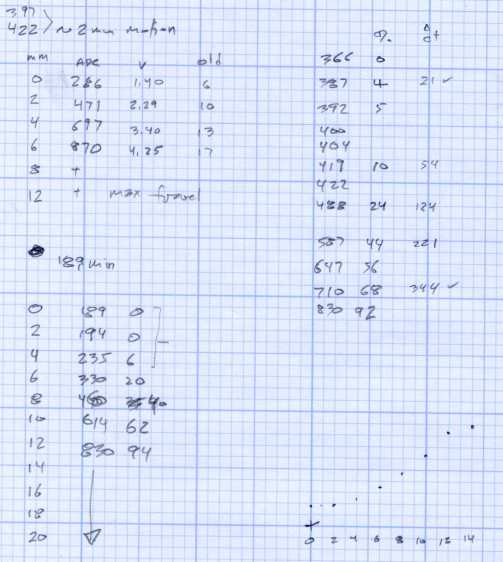 397
422 > ~ 2 mm motion
mm ADC V old
0 286 1.40 6
2 471 2.29 10
4 697 3.40 13
6 870 4.25 17
8 +
12 + max travel
189 min
0 189 0
2 194 0
4 235 6
6 330 20
8 460 40
10 614 62
12 830 94
14
16
18
20
%
366 0
387 4 21 ✓
392 5
400
404
419 10 54
422
488 24 124
587 44 221
647 56
710 68 344 ✓
830 92
0 2 4 6 8 10 12 14